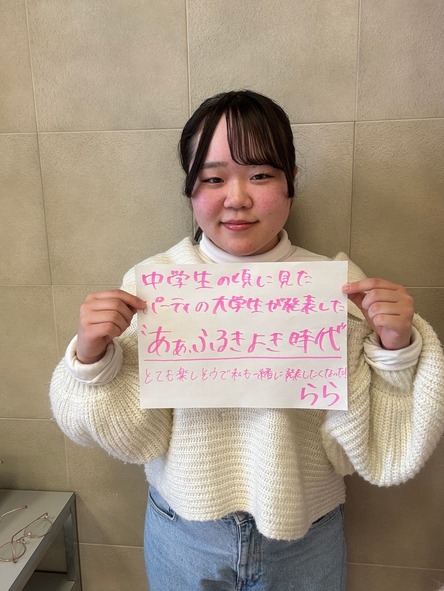 中学生の頃に見た
パーティの大学生が発表した
"あぁ、ふるきよき時代"
とても楽しそうで私も一緒に発表したくなった!
らら